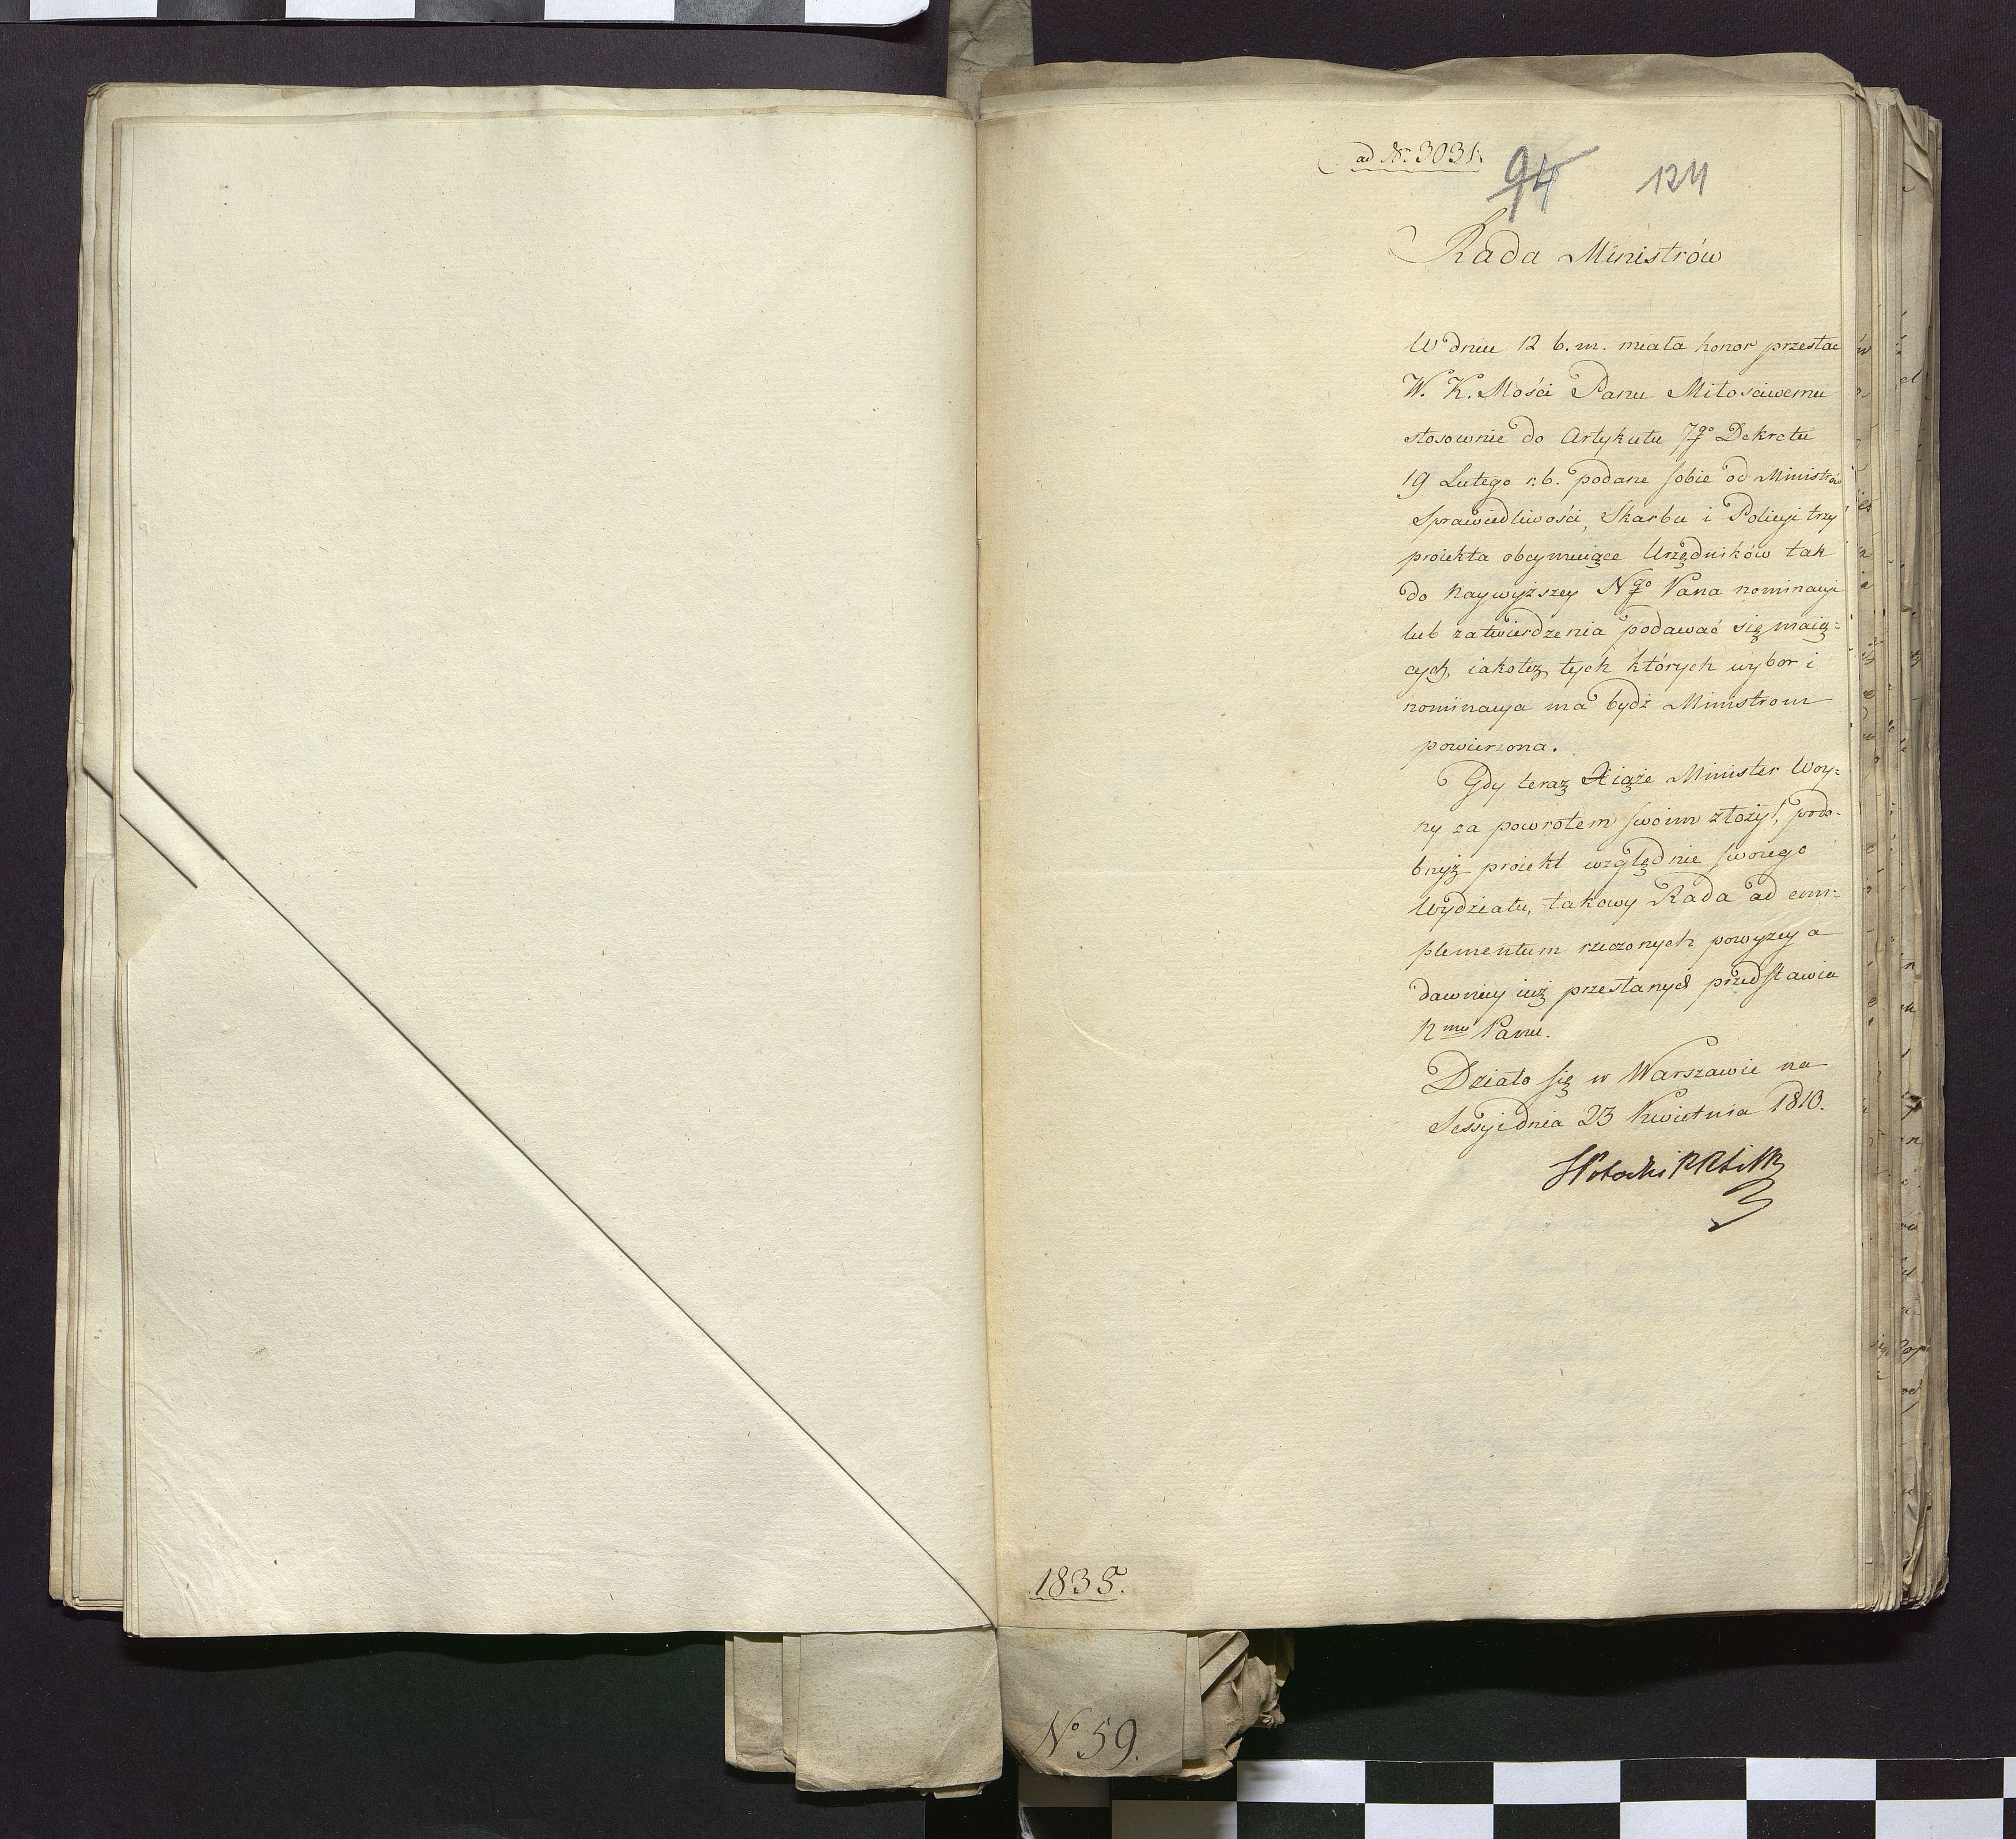 ad Nr. 3031.
94 124
Rada Ministrów
W dniu 12 b. m. miała honor przesłac
W. K. Mości Panu Miłosciwemu
stosownie do Artykułu 7go Dekretu
19 Lutego r. b. podane sobie od Ministrów
Sprawiedliwości, Skarbu i Policyi trzy
proiekta obeymuiące Urzędników tak
do naywyższey Ngo Pana nominacyi
lub zatwierdzenia podawać się maią=
cych, iakotęż tych których wybor i
nominacya ma bydź Ministrom
powierzona.
Gdy teraz Xiąże Minister Woy=
ny za powrotem swoim złożył, podo-
bnyż proiekt względnie swoiego
Wydziału, takowy Rada ad com-
plementum rzeczonych powyżey a
dawniey iuż przesłanych przedstawia
Nmu Panu.
Działo się w Warszawie na
Sessyi dnia 23 Kwietnia 1810.
1835.
No 59.